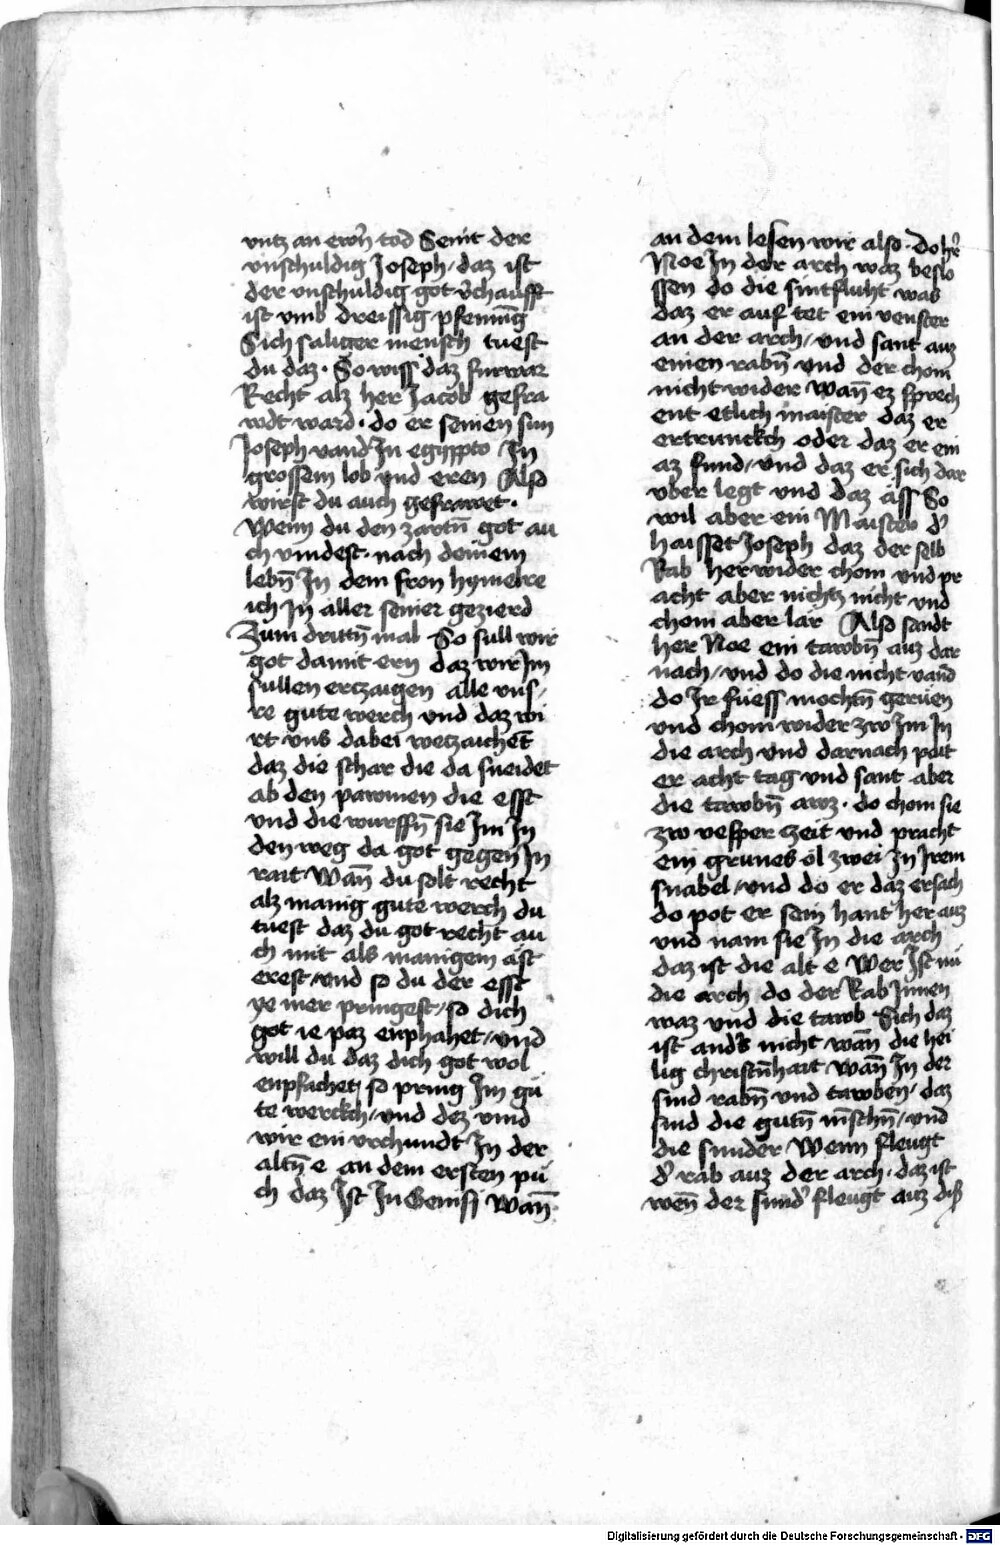 vntz an ewrn̄ tod Seint der
vnschuldig Joseph / daz ist
der vnschuldig got v̾chaufft
ist vmb dreissig pfenning
Sich saliger mensch tuest
du daz · So wiss daz furwar
Recht alz her Jacob gefra
wdt ward · do er seinen sun
Joseph vand In egyppto In
grossem lob vnd eren Also
wirst du auch gefrawet ·
Wenn du den zartn̄ got au
ch vindest · nach deinem
lebn̄ In dem fron hymelre
ich In aller seiner gezierd
Zum drittn̄ mal So sull wir
got damit ern daz wir Im
sullen ertzaigen alle vns /
re gute werch vnd daz wi
rt vns dabei wetzaichet
daz die schar die da sneidet
ab den pawmen die esst
vnd die wurffn̄ sie Im In
den weg da got gegen In
rait / Wan̄ du solt recht
alz manig gute werch du
tuest daz du got recht au
ch mit als manigem ast
erest / vnd so du der esst
ye mer pringest / so dich
got ie paz enphahet / vnd
will du daz dich got wol
enpfachet / so pring Im gu
te werckch / vnd dez vind
wir ein vrchundt In der
altn̄ e an dem ersten pu
ch daz Ist In Genisi Wan̄
an dem lesen wir also · Do h̾r
Noe In der arch waz beslo
ssen do die sintfluht was
daz er auf tet ein venster
an der arch / vnd sant auz
einen rabn̄ vnd der chom
nicht wider Wan̄ ez sprech
ent etlich maister daz er
ertrunckch oder daz er ein
az fund / vnd daz er sich dar
vber legt vnd daz äss So
wil aber ein Maister d̾
haisset Joseph daz der selb
Rab her wider chom vnd pr
acht aber nichtz nicht vnd
chom aber lär Also sandt
her Noe ein tawbn̄ auz dar
nach / vnd do die nicht vand
do Ir fuess mochtn̄ geruen
vnd chom wider zw Im In
die arch vnd darnach pait
er acht tag vnd sant aber
die tawbn̄ awz · do chom sie
zw vesper czeit vnd pracht
ein grunes öl zwei In Irem
snabel / vnd do er daz ersach
do pot er sein hant her auz
vnd nam sie In die arch
daz ist die alt e Wer Ist nu
die arch do der Rab Innen
waz vnd die tawb Sich daz
ist and̾s nicht wan̄ die hei
lig christn̄hait Wan̄ In der
sind rabn̄ vnd tawben / daz
sind die gutn̄ m̄schn̄ / vnd
die sunder Wenn fleugt
d̾ rab auz der arch · daz ist
wen̄ der sund̾ fleugt auz diß
Digitalisierung gefördert durch die Deutsche Forschungsgemeinschaft - DFG